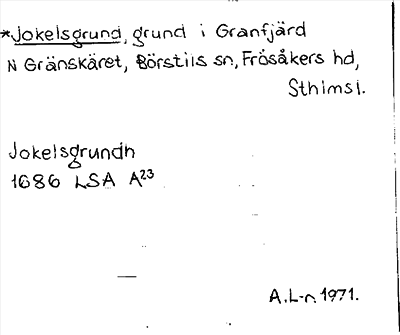 *Jokelsgrund, grund i Granfjärd
N Gränskäret, Börstils sn, Frösåkers hd,
Sthlmsl.
Jokelsgrundh
1686 LSA A23
A.L-n 1971.